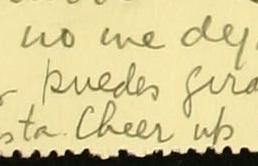 no me dej
puedes gira
sta. Cheer up